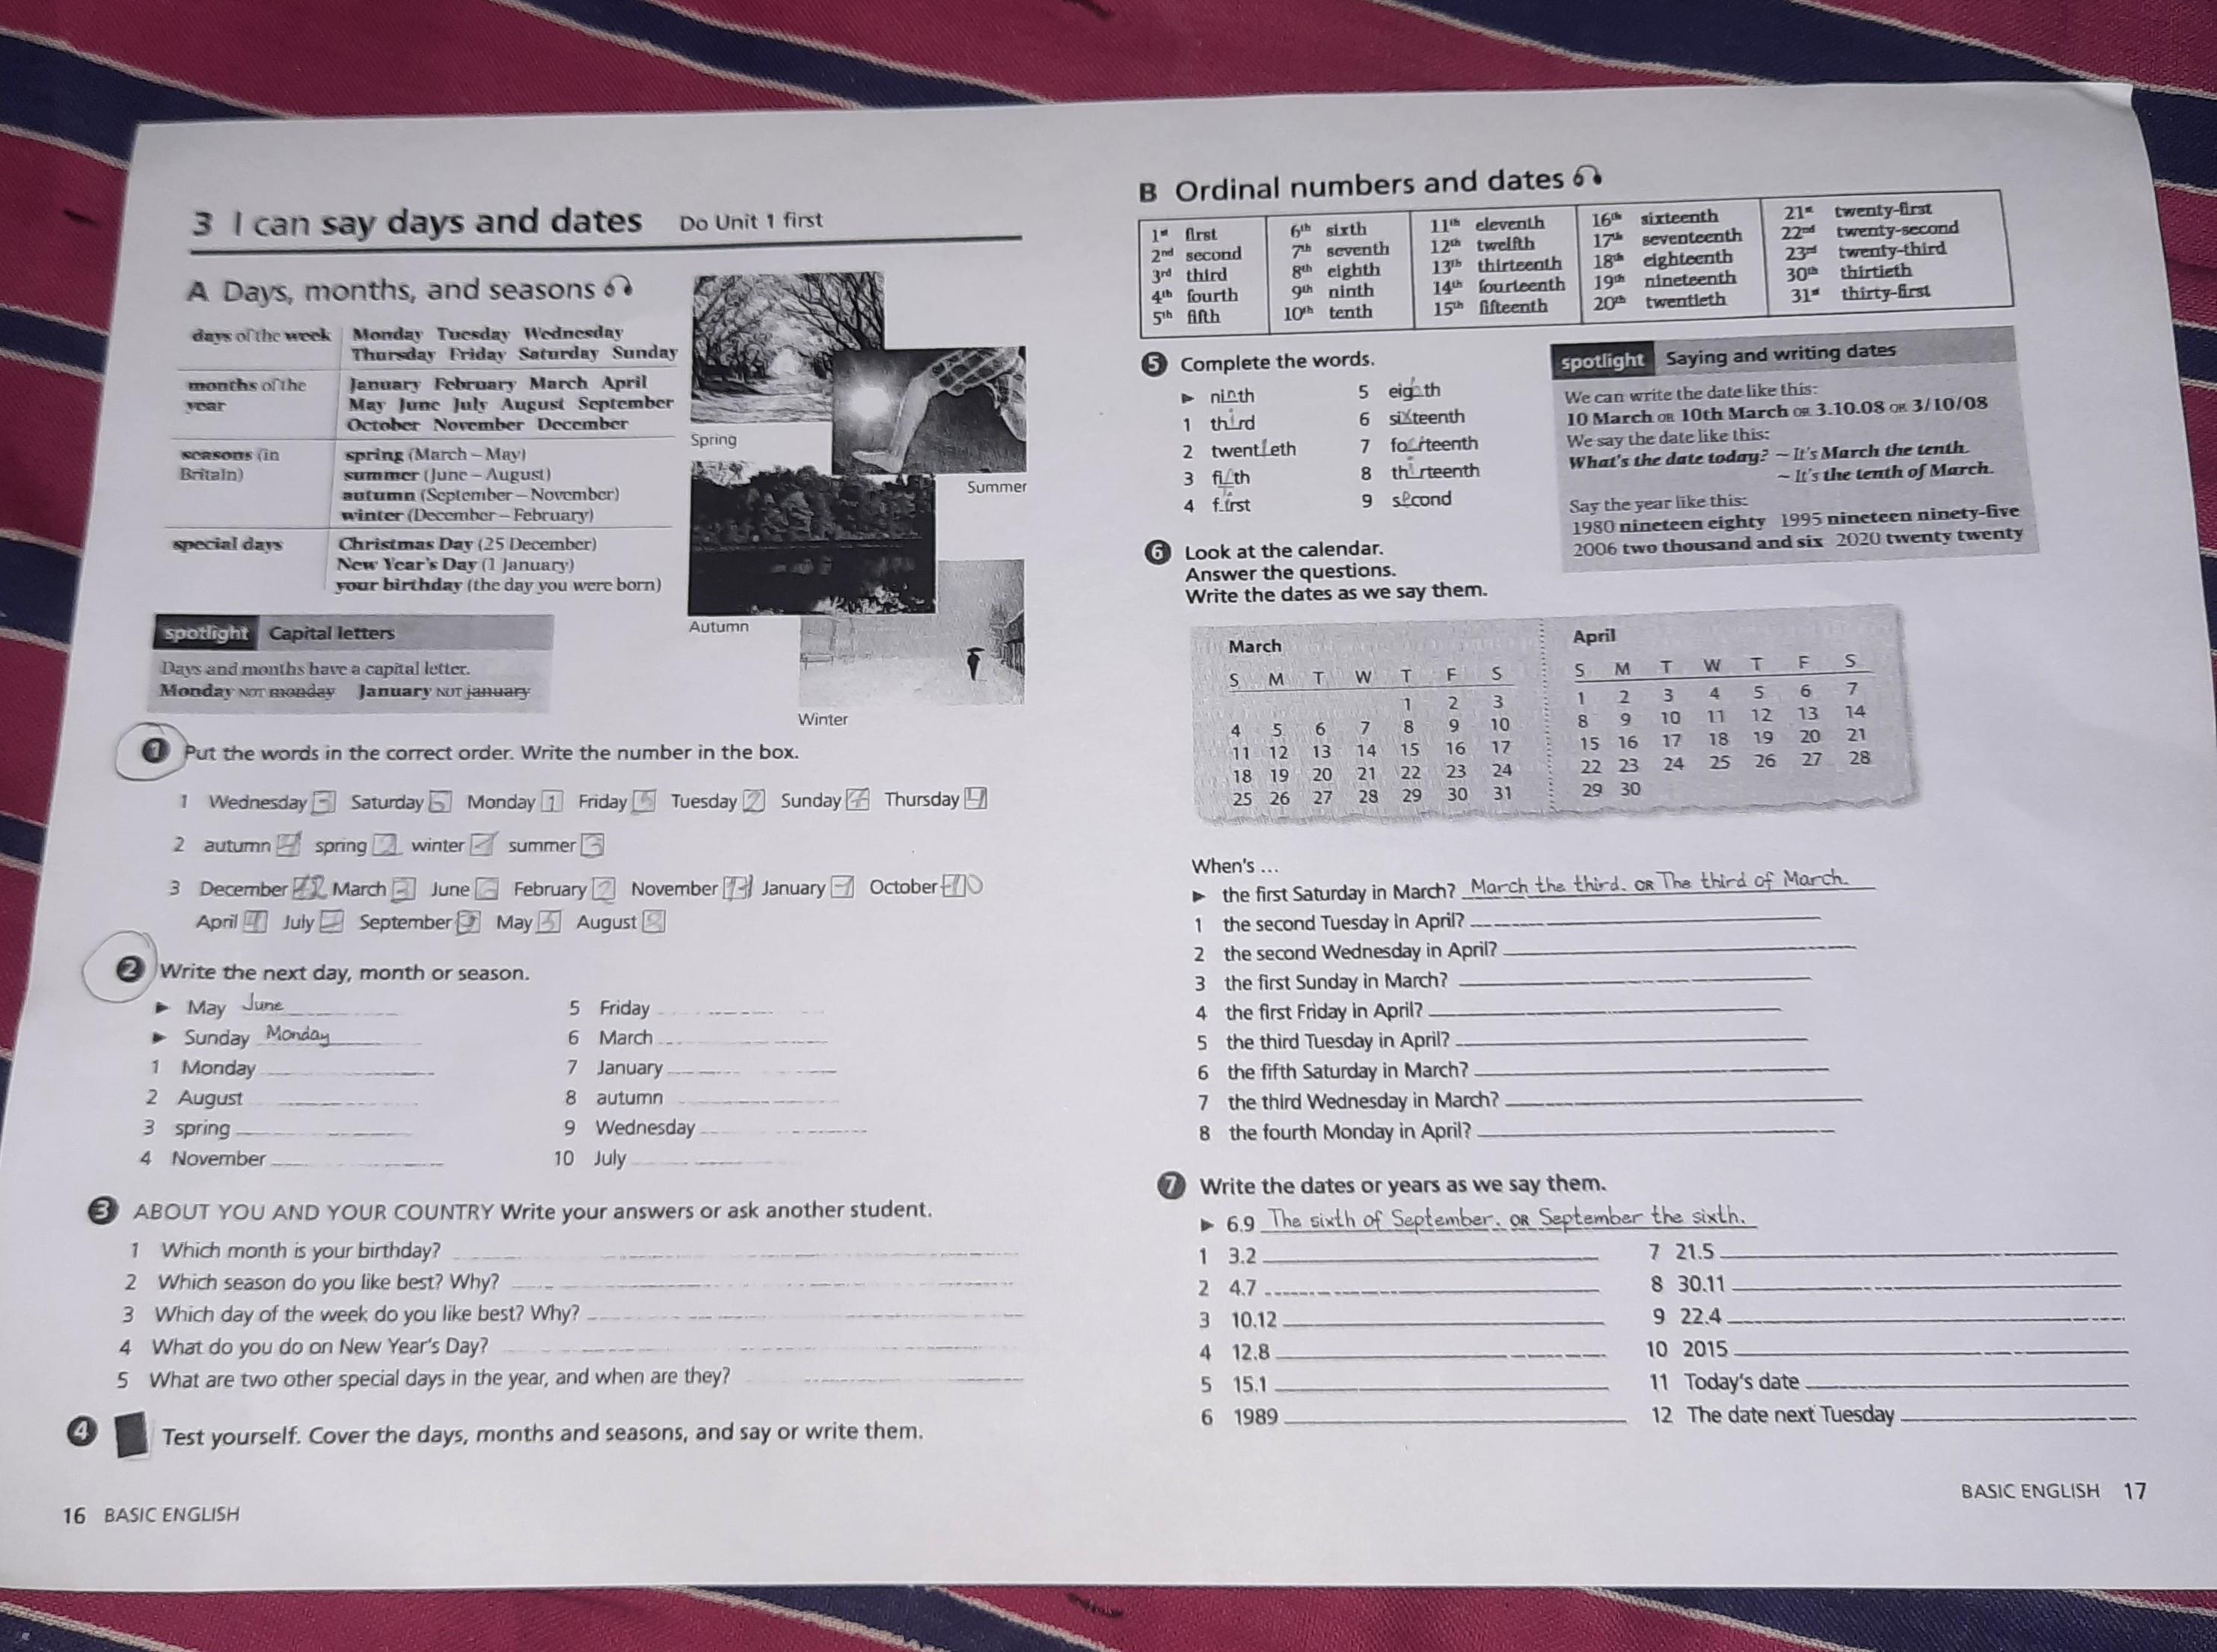 3 I can say days and dates Do Unit 1 first
A Days, months, and seasons
days of the week Monday Tuesday Wednesday
Thursday Friday Saturday Sunday
months of the year January February March April
May June July August September
October November December
seasons (in Britain) spring (March – May)
summer (June – August)
autumn (September – November)
winter (December – February)
special days Christmas Day (25 December)
New Year's Day (1 January)
your birthday (the day you were born)
Spring
Summer
Autumn
Winter
spotlight Capital letters
Days and months have a capital letter.
Monday NOT monday January NOT january
1 Put the words in the correct order. Write the number in the box.
1 Wednesday Saturday Monday 1 Friday Tuesday 2 Sunday Thursday 4
2 autumn 4 spring 2 winter summer 3
3 December March 3 June February 2 November January October 10
April July September May 5 August 8
2 Write the next day, month or season.
▶ May June
▶ Sunday Monday
1 Monday
2 August
3 spring
4 November
5 Friday
6 March
7 January
8 autumn
9 Wednesday
10 July
3 ABOUT YOU AND YOUR COUNTRY Write your answers or ask another student.
1 Which month is your birthday?
2 Which season do you like best? Why?
3 Which day of the week do you like best? Why?
4 What do you do on New Year's Day?
5 What are two other special days in the year, and when are they?
4 Test yourself. Cover the days, months and seasons, and say or write them.
16 BASIC ENGLISH
B Ordinal numbers and dates
1st first 6th sixth 11th eleventh 16th sixteenth 21st twenty-first
2nd second 7th seventh 12th twelfth 17th seventeenth 22nd twenty-second
3rd third 8th eighth 13th thirteenth 18th eighteenth 23rd twenty-third
4th fourth 9th ninth 14th fourteenth 19th nineteenth 30th thirtieth
5th fifth 10th tenth 15th fifteenth 20th twentieth 31st thirty-first
5 Complete the words.
▶ ninth
1 third
2 twentieth
3 fifth
4 first
5 eighth
6 sixteenth
7 fourteenth
8 thirteenth
9 second
spotlight Saying and writing dates
We can write the date like this:
10 March OR 10th March OR 3.10.08 OR 3/10/08
We say the date like this:
What's the date today? ~ It's March the tenth.
~ It's the tenth of March.
Say the year like this:
1980 nineteen eighty 1995 nineteen ninety-five
2006 two thousand and six 2020 twenty twenty
6 Look at the calendar.
Answer the questions.
Write the dates as we say them.
March
S M T W T F S
1 2 3
4 5 6 7 8 9 10
11 12 13 14 15 16 17
18 19 20 21 22 23 24
25 26 27 28 29 30 31
April
S M T W T F S
1 2 3 4 5 6 7
8 9 10 11 12 13 14
15 16 17 18 19 20 21
22 23 24 25 26 27 28
29 30
When's ...
▶ the first Saturday in March? March the third. OR The third of March.
1 the second Tuesday in April?
2 the second Wednesday in April?
3 the first Sunday in March?
4 the first Friday in April?
5 the third Tuesday in April?
6 the fifth Saturday in March?
7 the third Wednesday in March?
8 the fourth Monday in April?
7 Write the dates or years as we say them.
▶ 6.9 The sixth of September. OR September the sixth.
1 3.2
2 4.7
3 10.12
4 12.8
5 15.1
6 1989
7 21.5
8 30.11
9 22.4
10 2015
11 Today's date
12 The date next Tuesday
BASIC ENGLISH 17